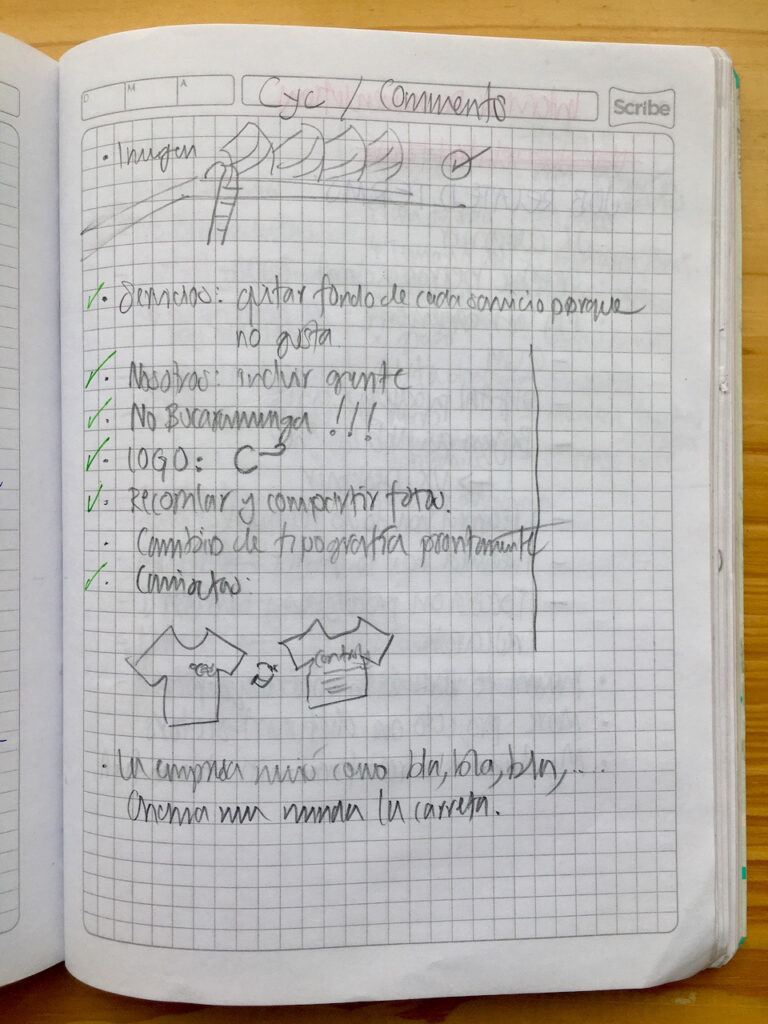 D M A
Cyc / Comments
Scribe
· Imagen
· Servicios: quitar fondo de cada servicio porque
no gusta
· Nosotros: incluir gente
· No Bucaramanga !!!
· LOGO: C³
· Recopilar y compartir fotos.
· Cambio de tipografía prontamente
· Camisetas:
· La empresa nació como bla, bla, bla, ....
la carreta.